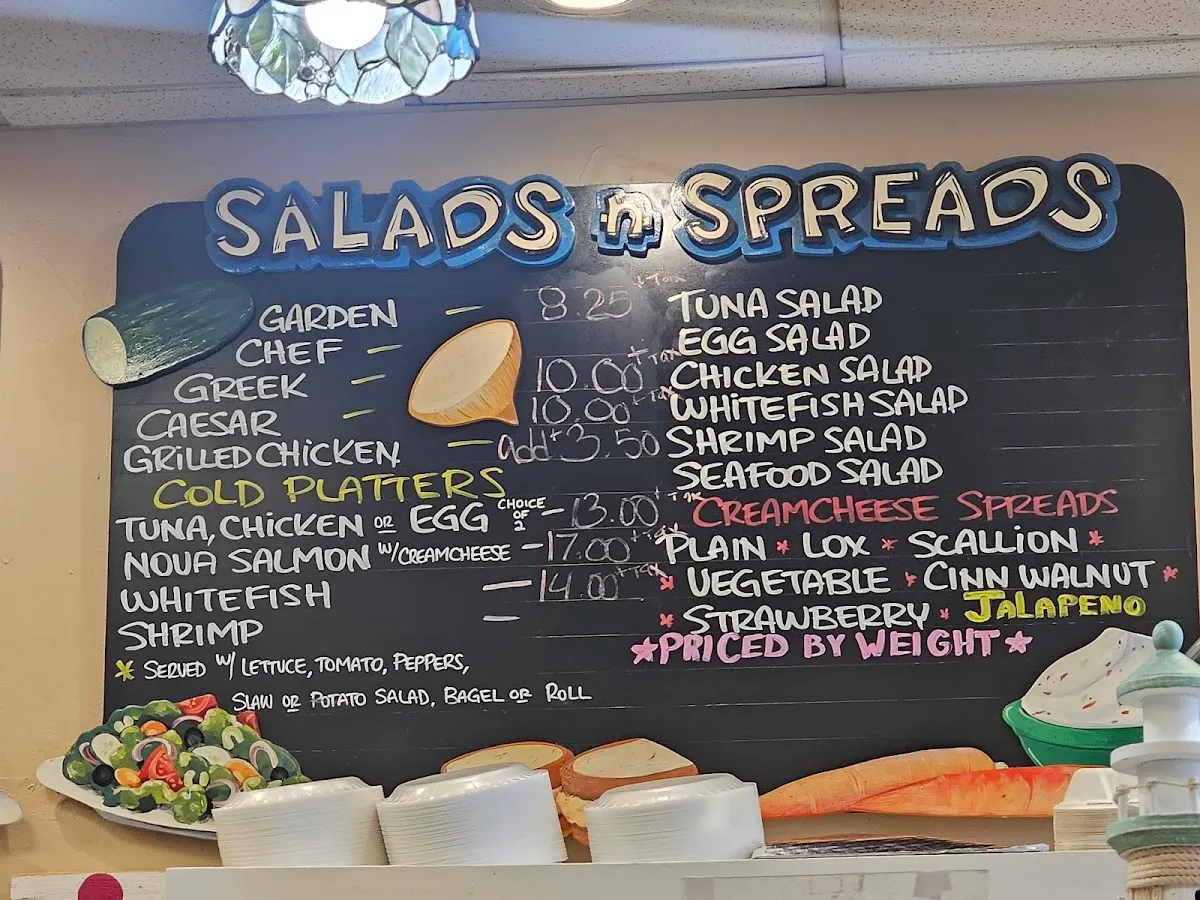 SALADS n SPREADS
GARDEN — 8.25 + Tax
CHEF —
GREEK — 10.00 + Tax
CAESAR — 10.00 + Tax
GRILLED CHICKEN — add + 3.50
COLD PLATTERS
TUNA, CHICKEN OR EGG CHOICE OF 2 - 13.00 + Tax
NOVA SALMON W/CREAMCHEESE - 17.00 + Tax
WHITEFISH — 14.00 + Tax
SHRIMP —
* SERVED W/ LETTUCE, TOMATO, PEPPERS,
SLAW OR POTATO SALAD, BAGEL OR ROLL
TUNA SALAD
EGG SALAD
CHICKEN SALAD
WHITEFISH SALAD
SHRIMP SALAD
SEAFOOD SALAD
CREAMCHEESE SPREADS
PLAIN * LOX * SCALLION *
* VEGETABLE * CINN WALNUT *
* STRAWBERRY * JALAPENO
★PRICED BY WEIGHT★